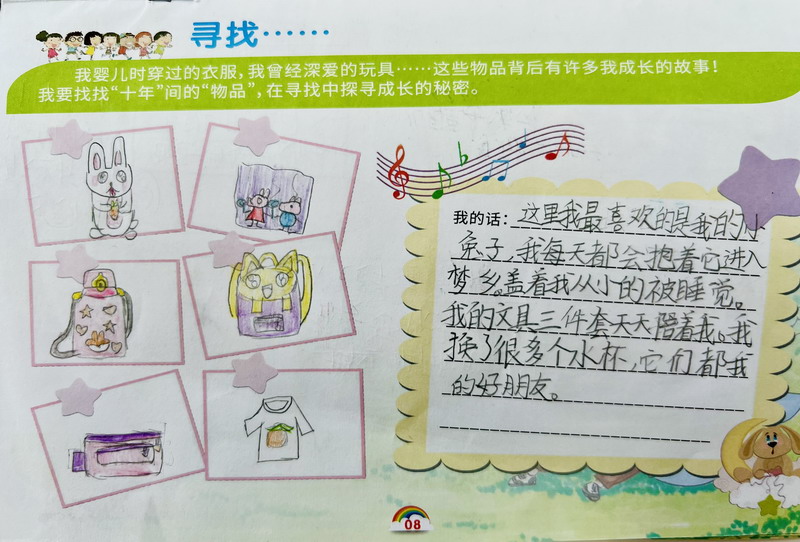 寻找……
我婴儿时穿过的衣服，我曾经深爱的玩具……这些物品背后有许多我成长的故事！
我要找找“十年”间的“物品”，在寻找中探寻成长的秘密。
我的话：这里我最喜欢的是我的小
兔子，我每天都会抱着它进入
梦乡。盖着我从小的被睡觉。
我的文具三件套天天陪着我。我
换了很多个水杯，它们都我
的好朋友。
08